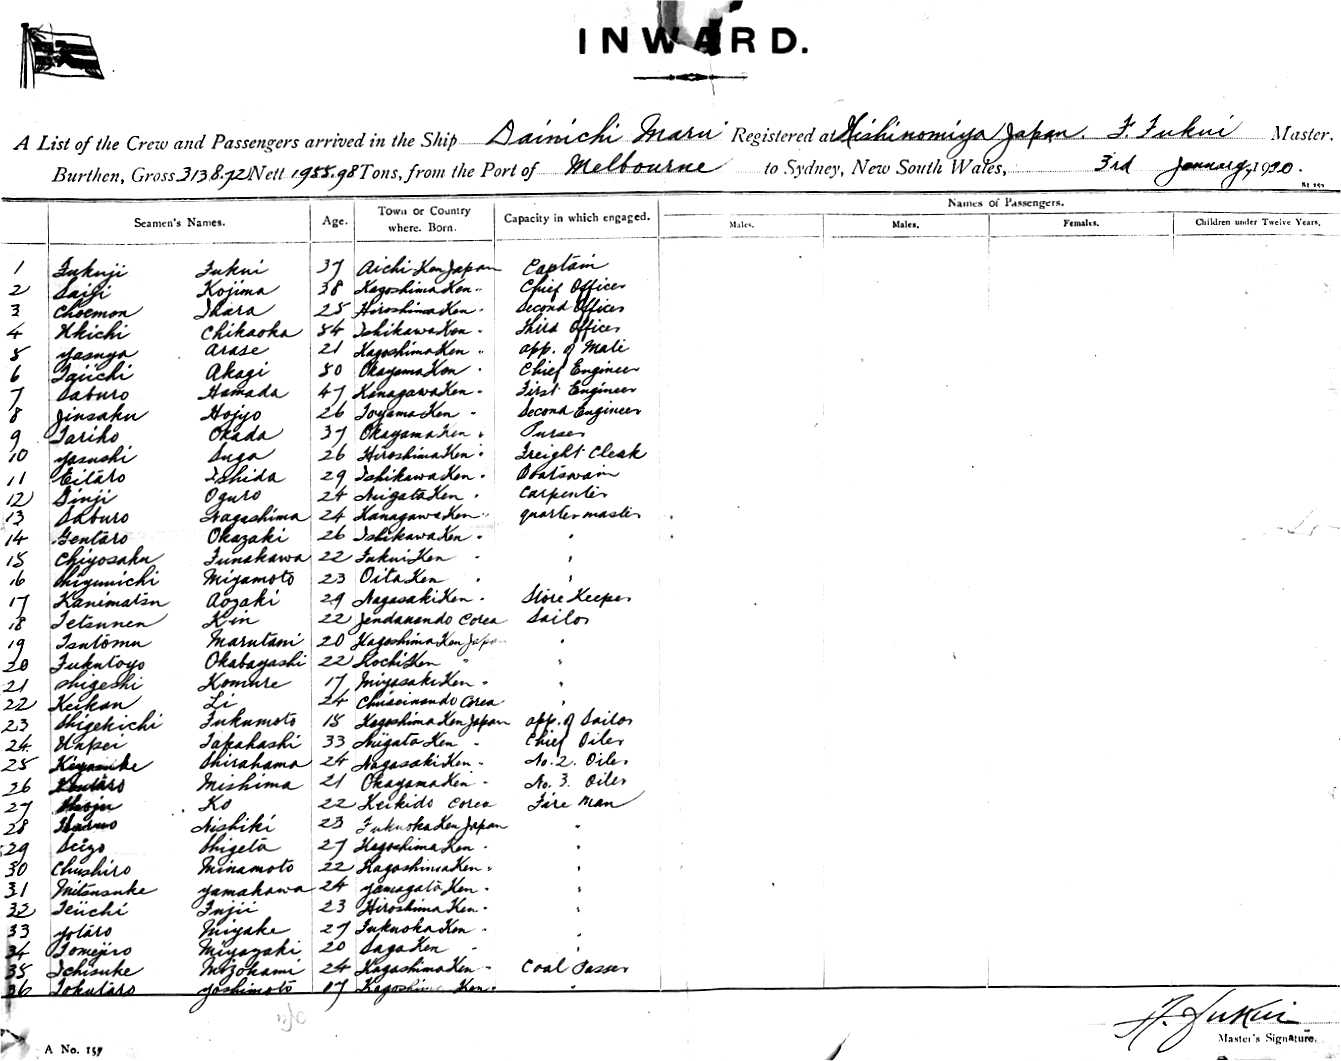 INWARD.
A List of the Crew and Passengers arrived in the Ship Dainichi Maru Registered at Nishinomiya Japan. F. Fukui Master.
Burthen, Gross 3138.72 Nett 1955.98 Tons, from the Port of Melbourne to Sydney, New South Wales, 3rd January, 1920.
Seamen's Names. Age. Town or Country where. Born. Capacity in which engaged. Names of Passengers.
Males. Males. Females. Children under Twelve Years,
1 Fukuji Fukui 37 Aichi Ken Japan Captain
2 Saiji Kojima 38 Kagoshima Ken " Chief Officer
3 Choemon Ihara 25 Hiroshima Ken " Second Officer
4 Ukichi Chikaoka 54 Ishikawa Ken " Third Officer
5 Yasuya Arase 21 Kagoshima Ken " app. of Mate
6 Taiichi Akagi 50 Okayama Ken " Chief Engineer
7 Saburo Hamada 47 Kanagawa Ken " First Engineer
8 Jinsaku Hojyo 26 Toyama Ken " Second Engineer
9 Tariho Okada 37 Okayama Ken " Purser
10 Yasushi Suga 26 Hiroshima Ken " Freight Cleak
11 Eitaro Ishida 29 Ishikawa Ken " Boatswain
12 Ginji Oguro 24 Niigata Ken " Carpenter
13 Saburo Nagashima 24 Kanagawa Ken " quartermaster
14 Gentaro Okazaki 26 Ishikawa Ken " "
15 Chiyosaku Funakawa 22 Fukui Ken " "
16 Shigemichi Miyamoto 23 Oita Ken " "
17 Kanimatsu Aozaki 29 Nagasaki Ken " Store Keeper
18 Tetsunen Kin 22 Jendanando Corea Sailor
19 Tsutomu Marutani 20 Kagoshima Ken Japan "
20 Fukutoyo Okabayashi 22 Kochi Ken " "
21 Shigeshi Komure 17 Miyasaki Ken " "
22 Keikan Li 24 Chuseinando Corea "
23 Shigekichi Fukumoto 18 Kagoshima Ken Japan app. of Sailor
24 Uhei Takahashi 33 Niigata Ken " Chief Oiler
25 Shirahama 24 Nagasaki Ken " No. 2. Oiler
26 Kentaro Mishima 21 Okayama Ken " No. 3. Oiler
27 Ko 22 Keikido Corea Fire Man
28 Nishiki 23 Fukuoka Ken Japan "
29 Seigo Shigeta 27 Kagoshima Ken " "
30 Chushiro Minamoto 22 Kagoshima Ken " "
31 Mitsusuke Yamakawa 24 Yamagata Ken " "
32 Teiichi Fujii 23 Hiroshima Ken " "
33 Yotaro Miyake 27 Fukuoka Ken " "
34 Tomejiro Miyazaki 20 Saga Ken " "
35 Ichisuke Mizokami 24 Kagashima Ken " Coal Passer
36 Tokutaro Yoshimoto 17 Kagoshima Ken " "
F. Fukui
Master's Signature.
A No. 157